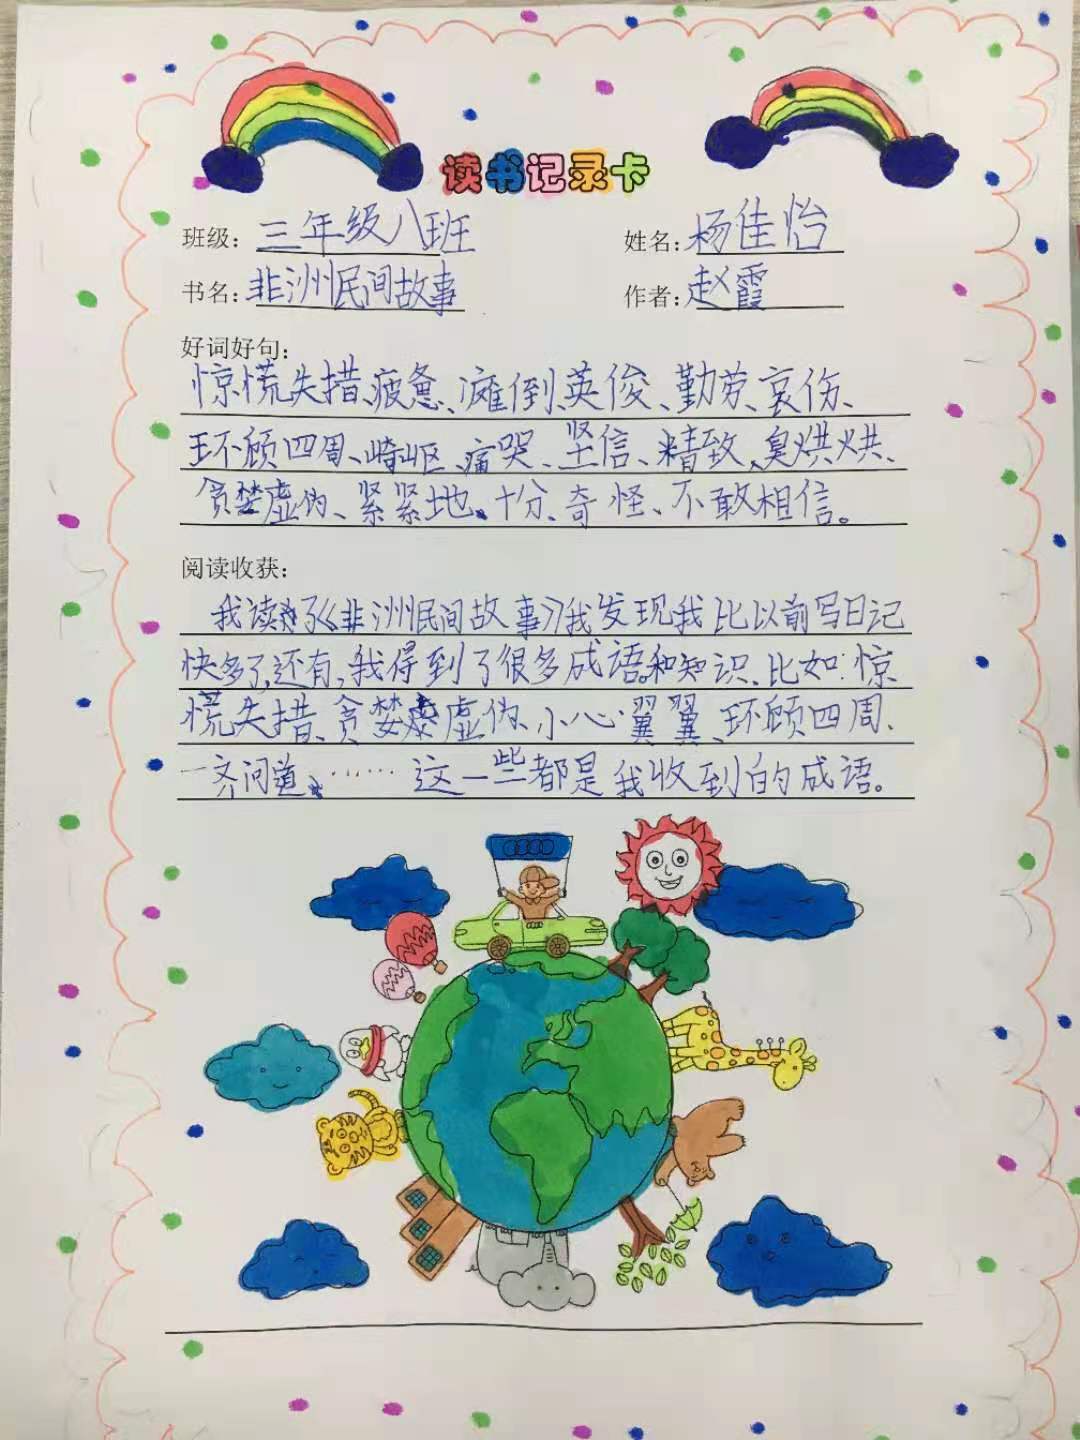 读书记录卡
班级：三年级八班 姓名：杨佳怡
书名：非洲民间故事 作者：赵霞
好词好句：
惊慌失措、疲惫、瘫倒、英俊、勤劳、哀伤、
环顾四周、崎岖、痛哭、坚信、精致、臭烘烘、
贪婪虚伪、紧紧地、十分、奇怪、不敢相信。
阅读收获：
我读了《非洲民间故事》我发现我比以前写日记
快多了,还有,我得到了很多成语和知识、比如：惊
慌失措、贪婪虚伪、小心翼翼、环顾四周、
一齐问道、……这一些都是我收到的成语。